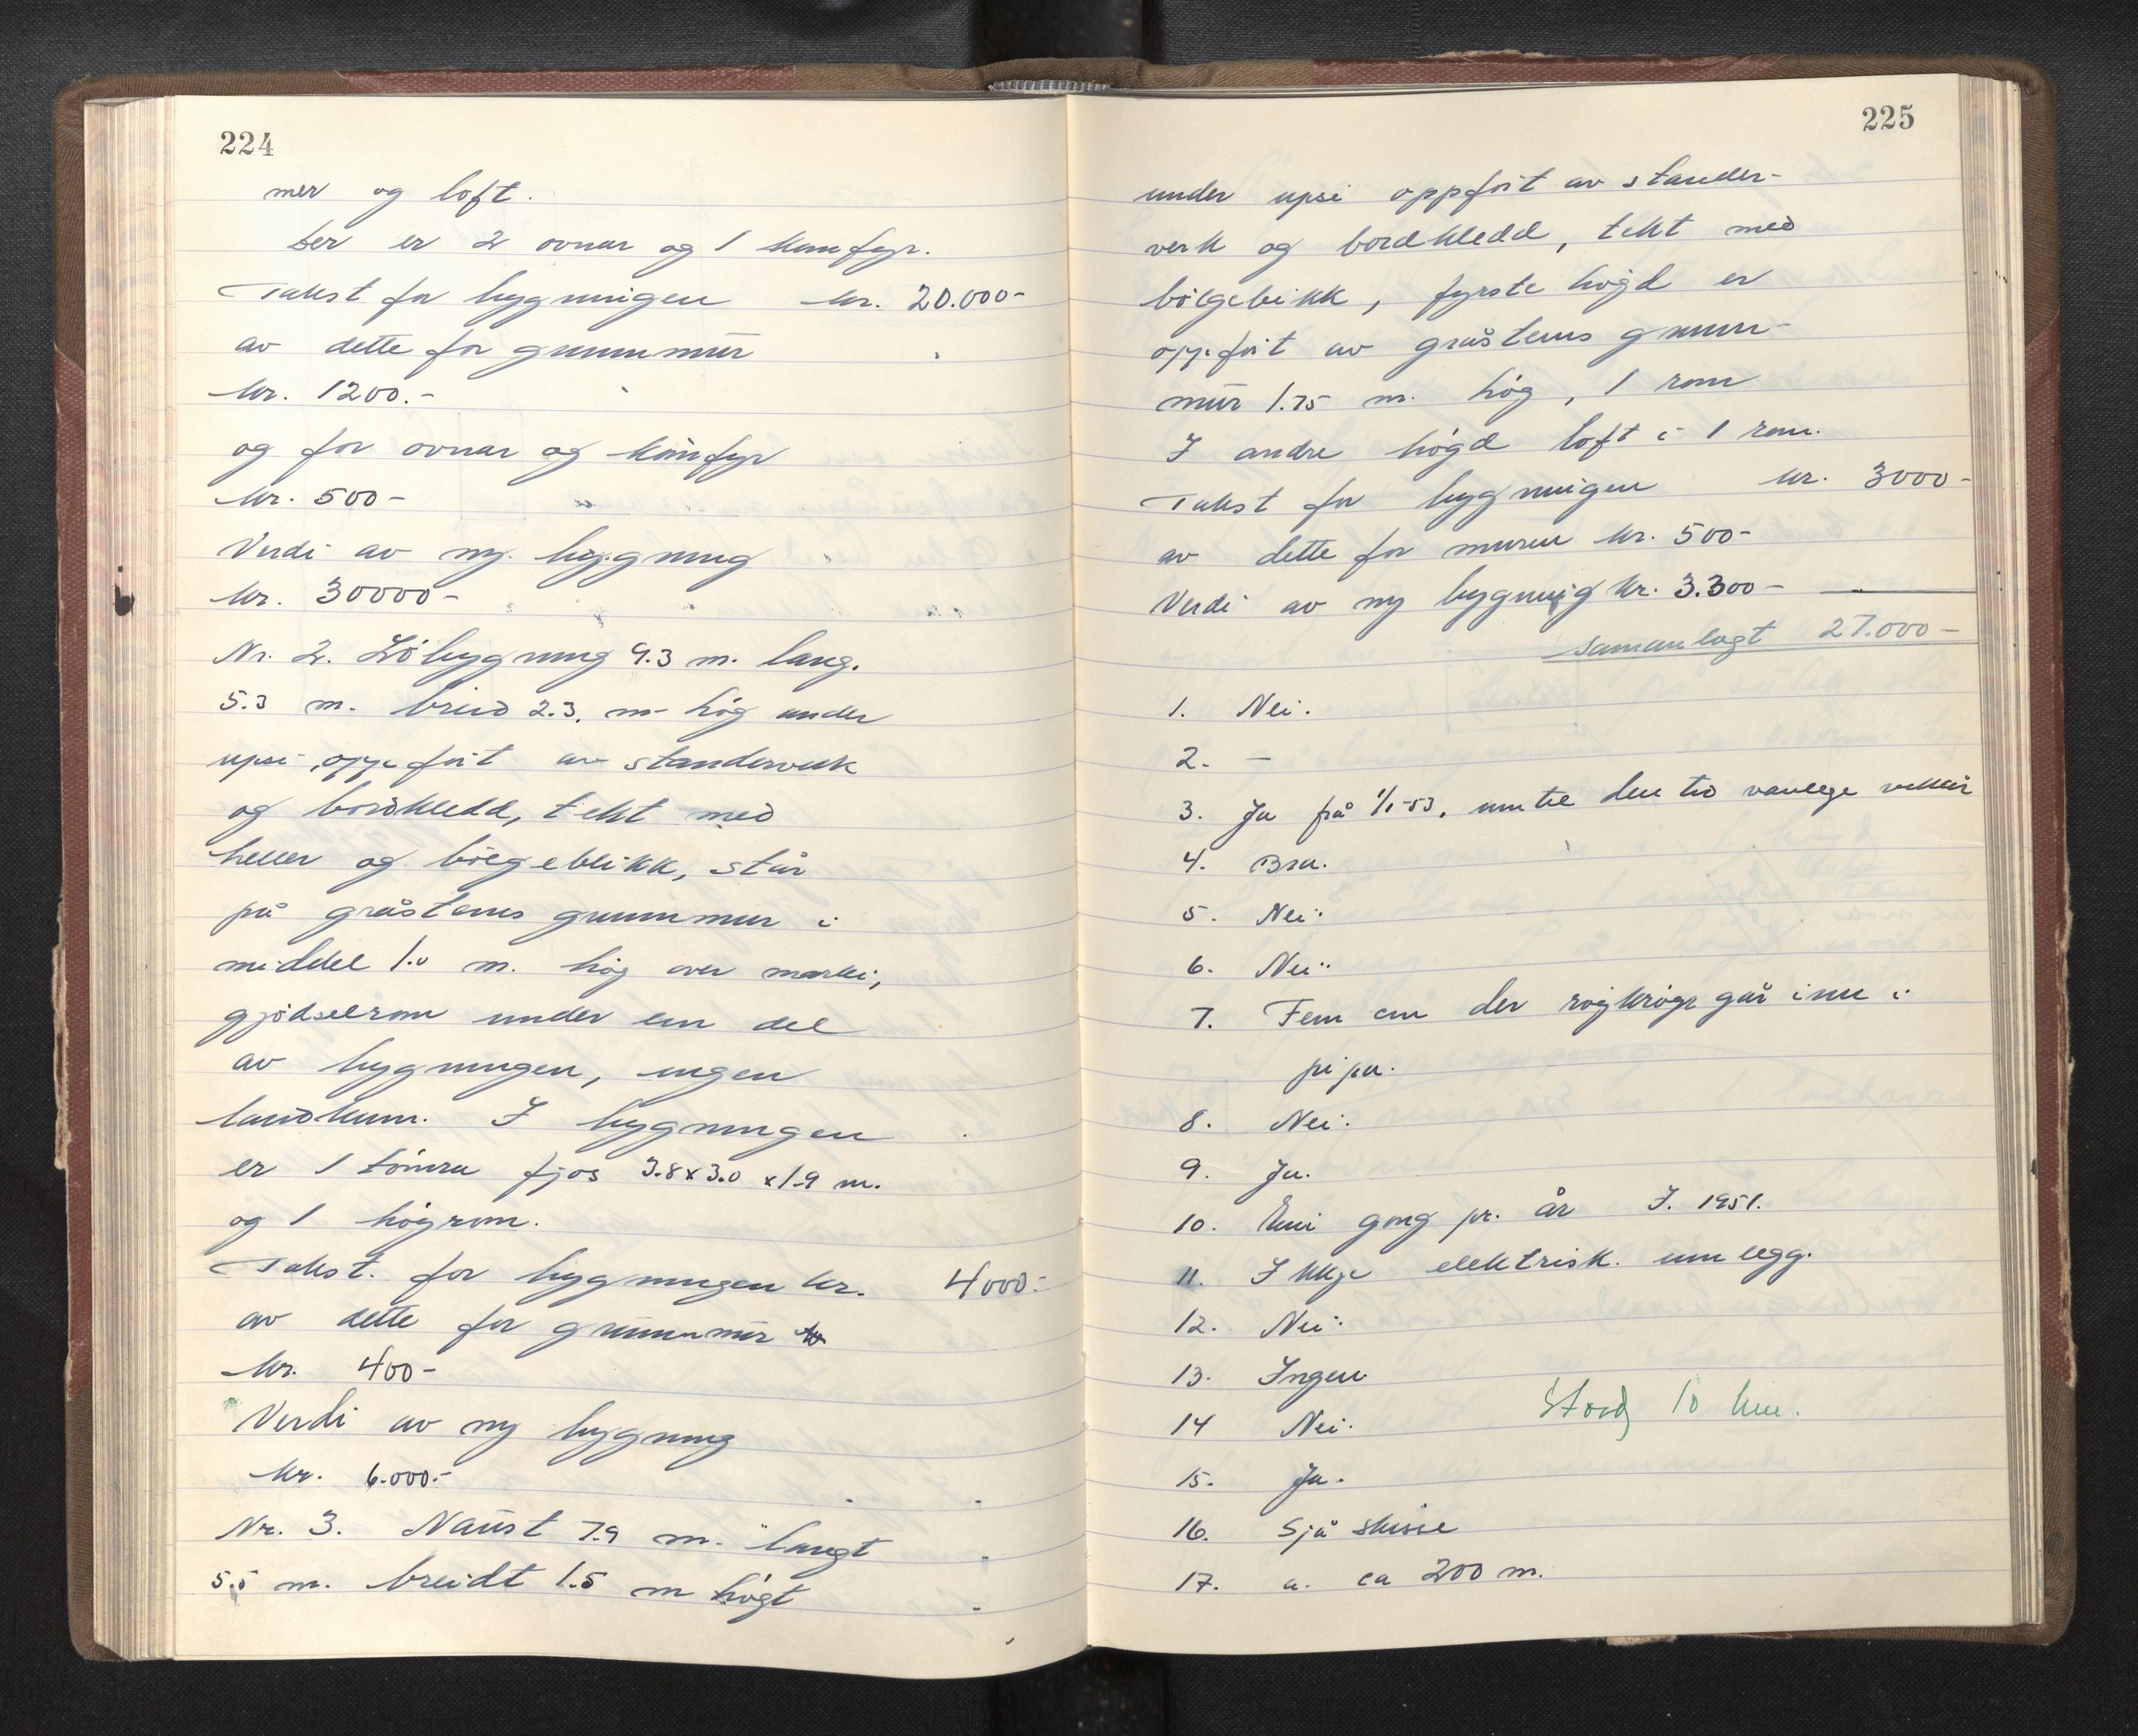 224
mer og loft.
Der er 2 ovnar og 1 komfyr.
Takst for bygningen kr. 20.000-
av dette for grunnmur
kr. 1200.-
og for ovnar og komfyr
kr. 500-
Verdi av ny bygning
kr. 30000-
Nr. 2. Löbygning 9.3 m. lang.
5.3 m. breid 2.3. m høg under
upsi, oppført av standerverk
og bordkledd, tekt med
heller og bölgeblikk, står
på gråsteins grunnmur i
middel 1.0 m. høg over marki,
gjødselrom under ein del
av bygningen, ingen
landkum. I bygningen
er 1 tömra fjos 3.8 x 3.0 x 1.9 m.
og 1 høyrom.
Takst. for bygningen kr. 4000.-
av dette for grunnmur
kr. 400-
Verdi av ny bygning
kr. 6.000.-
Nr. 3. Naust 7.9 m. langt
5.5 m. breidt 1.5 m høgt
225
under upsi oppført av stander-
verk og bordkledd, tekt med
bölgebikk, fyrste høgd er
oppført av gråsteins grunn-
mur 1.75 m. høg, 1 rom
I andre høgd loft i 1 rom.
Takst for bygningen kr. 3000-
av dette for muren kr. 500-
Verdi av ny bygning kr. 3.300-
samanlagt 27.000-
1. Nei.
2. -
3. Ja frå 1/1-53, til den tid vanlege vilkår
4. Bra.
5. Nei.
6. Nei.
7. Fem cm der går inn i
pipa.
8. Nei.
9. Ja.
10. Ein gong pr. år I. 1951.
11. Ikkje elektrisk. innlegg.
12. Nei.
13. Ingen
Stord 10 km.
14 Nei.
15. Ja.
16. Sjå skisse
17. a. ca 200 m.